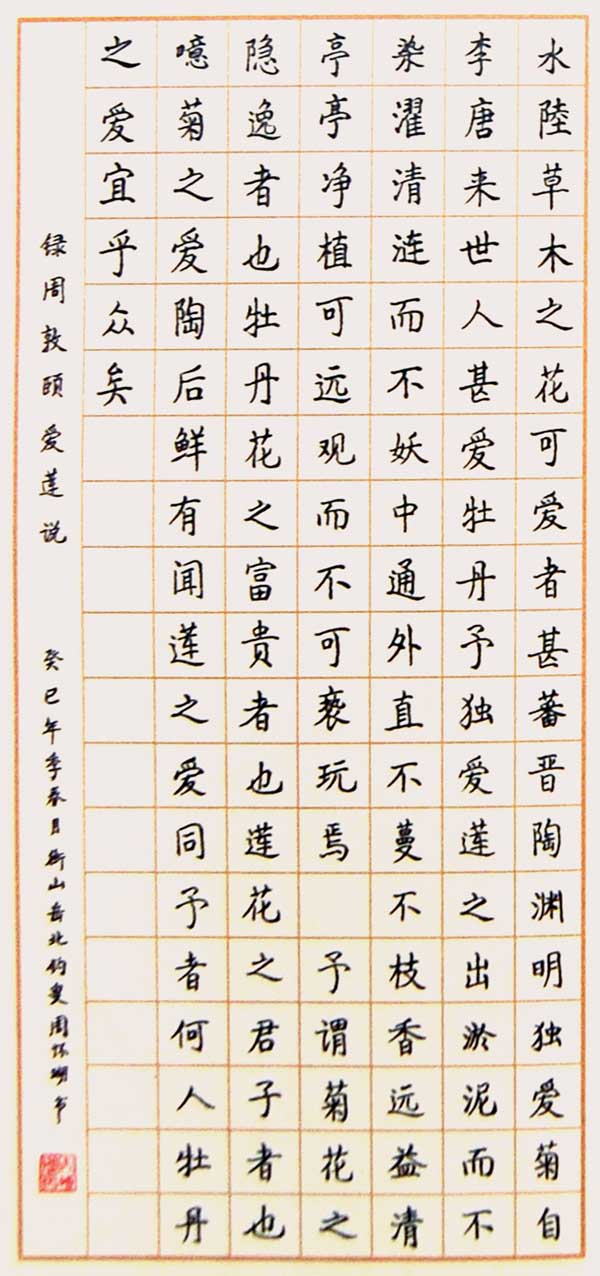 水陸草木之花可爱者甚蕃晋陶渊明独爱菊自
李唐来世人甚爱牡丹予独爱莲之出淤泥而不
染濯清涟而不妖中通外直不蔓不枝香远益清
亭亭净植可远观而不可亵玩焉 予谓菊花之
隐逸者也牡丹花之富貴者也莲花之君子者也
噫菊之爱陶后鲜有闻莲之爱同予者何人牡丹
之爱宜乎众矣
绿周敦颐爱莲说 癸巳年季春月衡山岳北钓叟周怀书